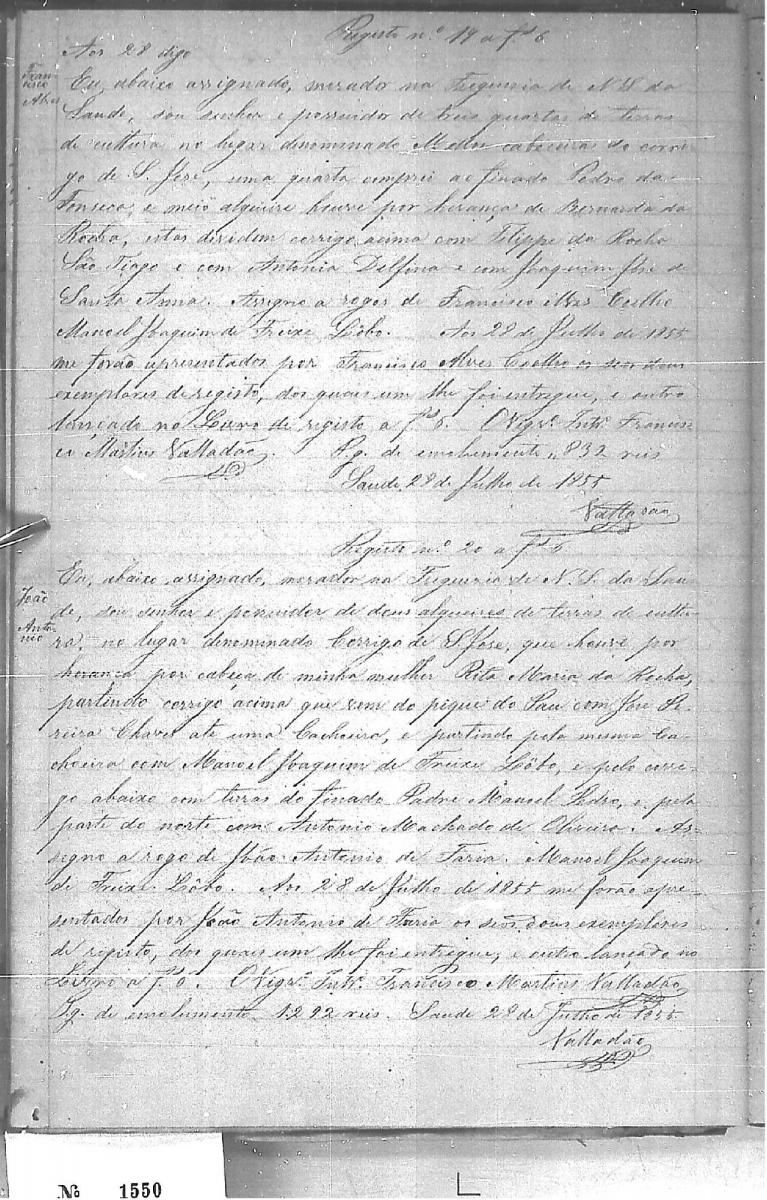 Registo n.º 19 a f.s 6
Aos 28 digo
Francisco Alves
Eu, abaixo assignado, morador na Freguesia de N. S. da
Saude, sou senhor e possuidor de tres quartas de terras
de cultura no lugar denominado cabeceiras do corre-
go de S. José, uma quarta comprei ao finado Pedro da
Fonseca, e meio alqueire houve por herança de Bernarda da
Rocha, estas dividem corrigo acima com Filippe da Rocha
São Tiago e com Antonia Delfina e com Joaquim José de
Santa Anna. Assigno a rogo de Francisco Alves Coelho
Manoel Joaquim de Freixe Lôbo. Aos 28 de Julho de 1855
me forão apresentados por Francisco Alves Coelho os seos dous
exemplares de registo, dos quais um lhe foi entregue, e outro
lançado no Livro de registo a f.s 6. O Vigr.º Intr.º Francis-
co Martins Valladão. Pg. de emolumento 832 reis
Saude 28 de Julho de 1855
Valladão
Registo n.º 20 a f.s 6
João Antonio
Eu, abaixo assignado, morador na Freguesia de N. S. da Sau-
de, sou senhor e possuidor de dous alqueires de terras de cultu-
ra, no lugar denominado Corrigo de S. José, que houve por
herança por cabeça de minha mulher Rita Maria da Rocha,
partindo corrigo acima que vem do pique do Sau com José Pe-
reira Chaves até uma Cachoeira, e partindo pela mesma Ca-
choeira com Manoel Joaquim de Freixe Lôbo, e pelo corre-
go abaixo com terras do finado Padre Manoel Pedro, e pela
parte do norte com Antonio Machado de Oliveira. As-
signo a rogo de João Antonio de Faria. Manoel Joaquim
de Freixe Lôbo. Aos 28 de Julho de 1855 me forão apre-
sentados por João Antonio de Faria os seos dous exemplares
de registo, dos quais um lhe foi entregue, e outro lançado no
Livro a f.s 6. O Vigr.º Intr.º Francisco Martins Valladão
Pg. de emolumento 1292 reis. Saude 28 de Julho de 1855
Valladão
Nº 1550